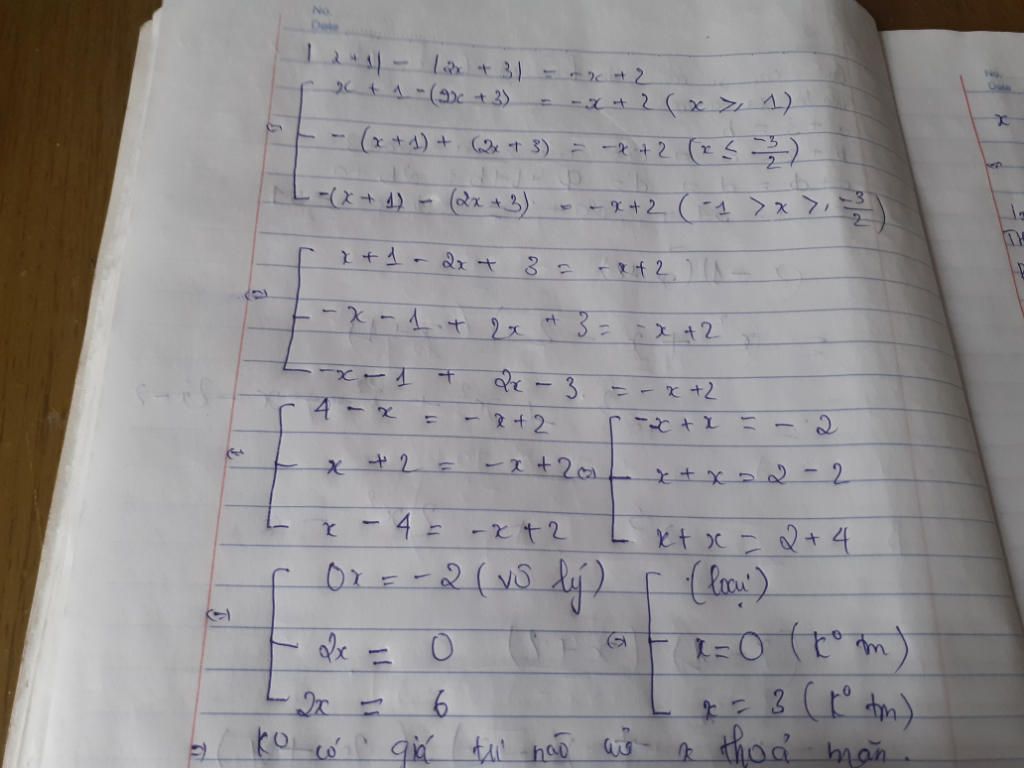 No.
Date
|x+1| - |2x + 3| = -x+2
⇔ [ x + 1 -(2x+3) = -x+2 ( x ≥ 1)
- (x+1) + (2x+3) = -x+2 (x ≤ -3/2)
-(x+1) - (2x+3) = -x+2 ( -1 > x ≥ -3/2)
⇔ [ x+1 - 2x + 3 = -x+2
-x - 1 + 2x + 3 = -x+2
-x-1 + 2x - 3 = -x+2
⇔ [ 4 - x = -x+2 [ -x+x = - 2
x + 2 = -x+2 ⇔ x + x = 2 - 2
x - 4 = -x+2 x+x = 2+4
⇔ [ 0x = -2 (vô lý) [ (loại)
2x = 0 ⇔ x=0 (k° tm)
2x = 6 x = 3 (k° tm)
⇒ k° có giá trị nào của x thoả mãn.
No.
Date
x